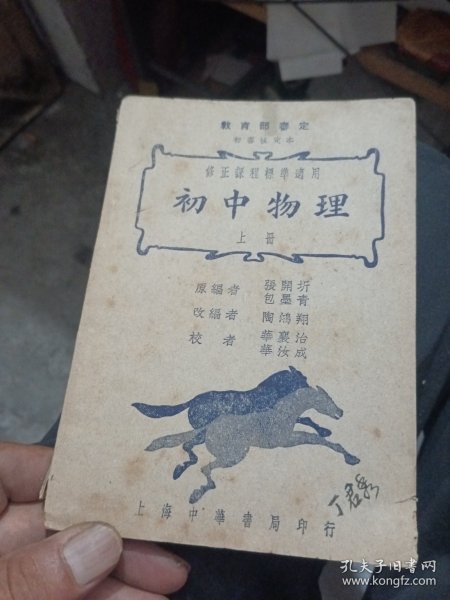 教育部審定
初審核定本
修正課程標準適用
初中物理
上冊
原編者 張開圻
包墨青
改編者 陶鴻翔
校者 華襄治
華汝成
上海中華書局印行
丁君
孔夫子旧书网
www.kongfz.com